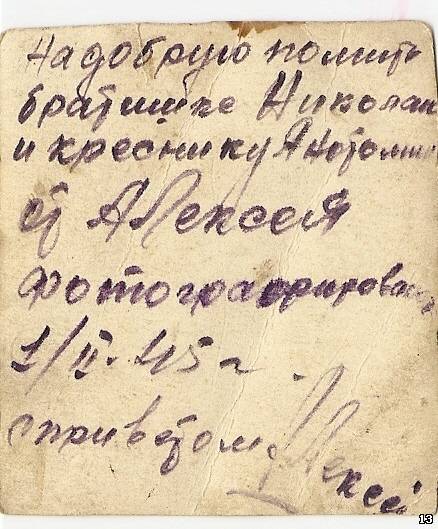 На добрую помить
братишке Николаю
и креснику Анотолию
от Алексея
фотографирован
1/II-45 г.
с приветом Алексей
13